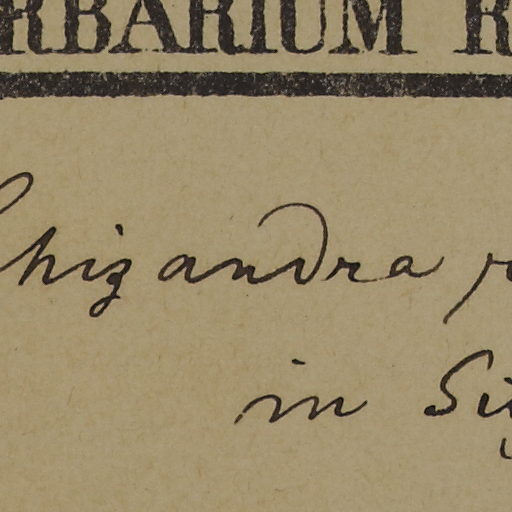 RBARIUM R
hizandra r
in Si